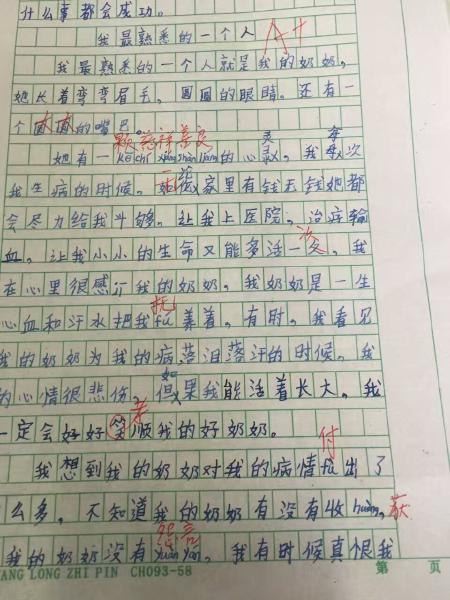 什么事都会成功。
我最熟悉的一个人
A+
我最熟悉的一个人就是我的奶奶，
她长着弯弯眉毛，圆圆的眼睛。还有一
个圆圆的嘴巴。
颗慈祥善良 灵 每
她有一kē cí xiáng shàn liáng的心，我每次
我生病的时候。家里有钱无钱她都
会尽力给我斗够。让我上医院，治疗输
血。让我小小的生命又能多活一次。我
在心里很感亓我的奶奶。我奶奶是一生
抚
心血和汗水把我fǔ养着。有时。我看见
我的奶奶为我的病落泪落汗的时候。我
如
的心情很悲伤，但果我能活着长大。我
孝
一定会好好笑顺我的好奶奶。
付
我想到我的奶奶对我的病情fù出了
么多，不知道我的奶奶有没有收huò。获
怨言
我的奶奶没有yuàn yán，我有时候真恨我
ANG LONG ZHI PIN CH093-58 第 页